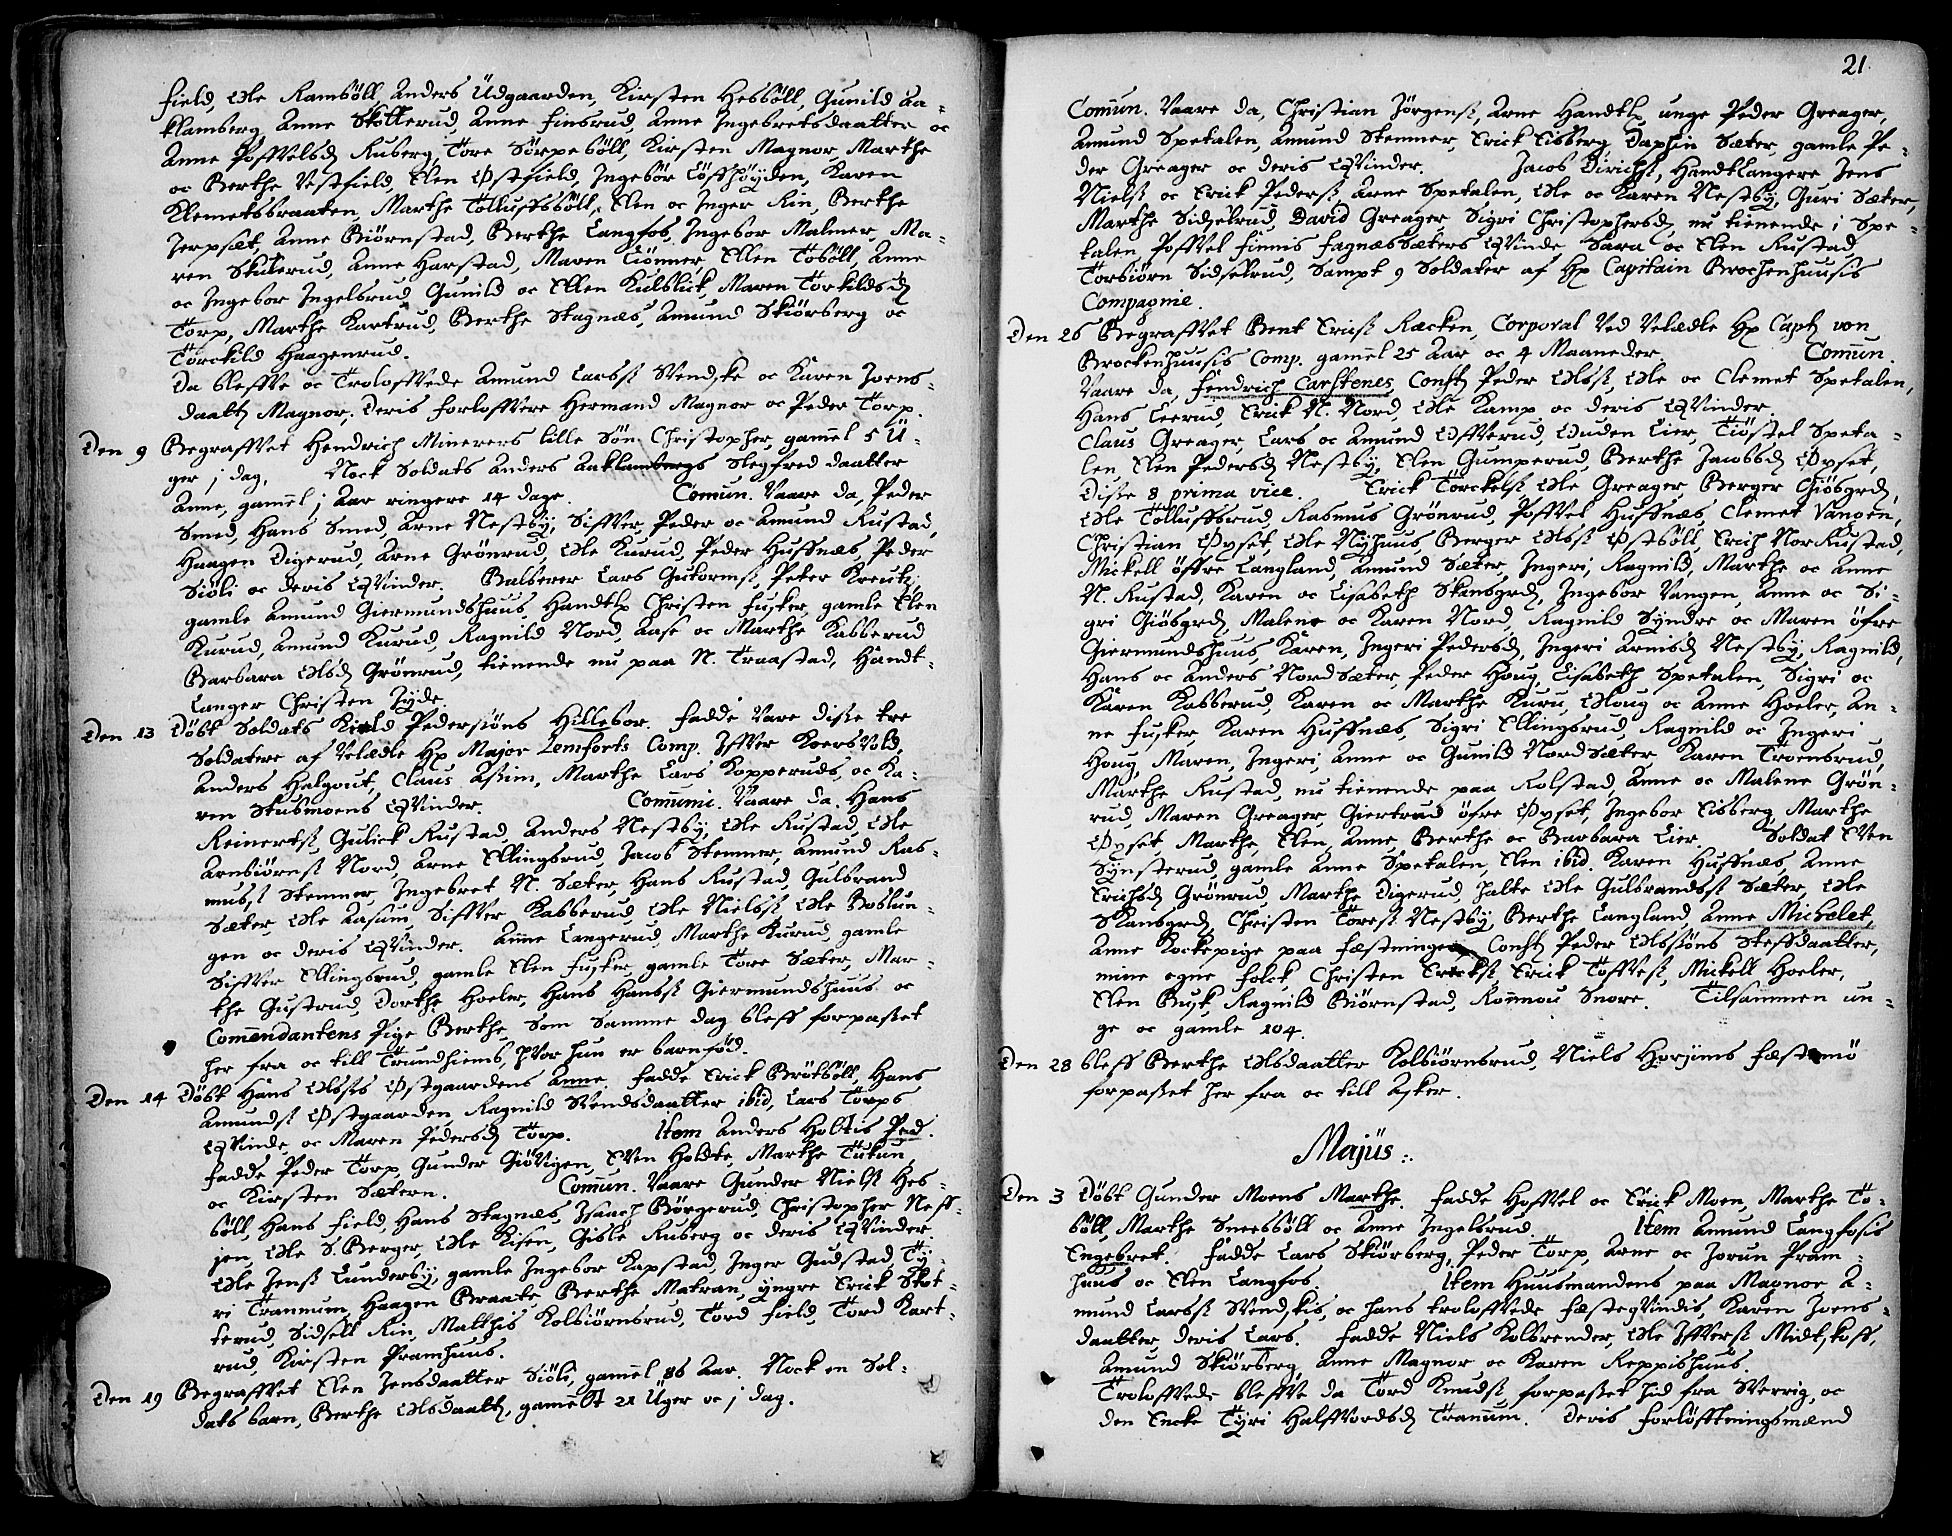 field, Ole Ramböll, Anders Üdgaarden, Kirsten Hesböll, Gunild Aa-
klamberg, Anne Skotterud, Anne Finsrud, Anne Ingebretsdaatter oc
Anne Poffvelsd Ruberg, Tore Sörpeböll, Kirsten Magnor, Marthe
oc Berthe Vestfield, Elen Østfield, Ingebor Löffhöyden, Karen
Klemetsbraaten, Marthe Tolluffsböll, Elen oc Inger Rin, Berthe
Jerpset, Anne Biörnstad, Berthe Langfos, Ingebor Malmer, Ma-
ren Skulerud, Anne Harstad, Maren Tiönner, Ellen Töböll, Anne
oc Ingebor Ingelsrud, Gunild oc Ellen Kulblick, Maren Torkildsd
Torp, Marthe Kartrud, Berthe Skagnæs, Amund Skiörberg oc
Törckild Haagenrud.
Da bleffve oc Troloffvede Amund Larsß Svendske oc Karen Joens-
daatt Magnor. Deris forloffvere Hermand Magnor oc Peder Torp.
Den 9 Begraffvet Hendrich Minerers lille Sön Christopher, gamel 5 Ü-
ger j dag. Nock Soldats Anders Aaklambergs Slegfred daatter
Anne, gamel j Aar ringere 14 dage. Comun. Vaare da, Peder
Smed, Hans Smed, Arne Nestby, Siffver, Peder oc Amund Rustad,
Haagen Digerud, Arne Grönrud, Ole Kurud, Peder Huffnæs, Peder
Siöli oc deris Qvinder. Balberer Lars Gutormß, Peter Kreutz
gamle Amund Giermundshuus, Handtl Christen Fusker, gamle Elen
Kurud, Amund Kurud, Ragnild Nord, Aase oc Marthe Kasserud
Barbara Olsd Grönrud, tienende nu paa N. Traastad, Handt-
Langer Christen Jyde.
Den 13 Döbt Soldats Kield Pedersöns Hillebor. Fadde Vare diße tre
Soldatere af Velædle H Major Lemforts Comp. Iffver Koersvold,
Anders Halgout, Claus Aßim, Marthe Lars Kopperuds, oc Ka-
ren Stubmoens Qvinder. Comuni. Vaare da. Hans
Reinertß, Gulick Rustad, Anders Nestby, Ole Rustad, Ole
Arnbiörnß Nord, Arne Ellingsrud, Jacob Stemner, Amund Ras-
musß Stemner, Ingebret N. Sæter, Hans Rustad, Gulbrand
Sæter, Ole Aasum, Siffver Kasserud, Ole Nielsß, Ole Boslun-
gen oc deris Qvinder. Anne Langerud, Marthe Kurud, gamle
Siffver Ellingsrud, gamle Elen Fusker, gamle Tore Sæter, Mar-
the Gustrud, Dorthe Hoeler, Hans Hansß Giermundshuus oc
Comendantens Pige Berthe, som samme dag bleff forpaßet
her fra oc till Trundhiems, hvor hun er barnfød.
Den 14 Döbt Hans Olsöns Østgaardens Anne. Fadde Erick Bröböll, Hans
Amundß Østgaarden, Ragnild Svendsdaatter ibid, Lars Torps
Qvinde, oc Maren Pedersd Torp. Item Anders Holtis Ped.
Fadde Peder Torp, Gunder Giövigen, Sven Holdte, Marthe Tukun
oc Kirsten Sætern. Comun. Vaare Gunder Nielsß Hes-
böll, Hans Field, Hans Skagnæs, Isaach Börgerud, Christopher Neff-
jen, Ole S. Berger, Ole Risen, Gisle Ruberg oc deris Qvinder.
Ole Jensß Lundersby, gamle Ingebor Kapstad, Inger Gudstad, Ty-
ri Trannum, Haagen Braate, Berthe Matran, yngre Erick Skot-
terud, Sidsell Rin, Matthis Kolbiörnsrud, Tord Field, Tord Kart-
rud, Kirsten Pramhuus.
Den 19 Begraffvet Elen Jensdaatter Siöli, gamel 86 Aar. Nock en Sol-
dats barn, Berthe Olsdaatt, gamelt 21 Üger oc j dag.
21.
Comun. Vaare da, Christian Jörgensß, Arne Handtl unge Peder Greager,
Amund Spetalen, Amund Stemner, Erick Eisberg, Daphin Sæter, gamle Pe-
der Greager oc deris Qvinder. Jacob Dirichß, Handtlangere Jens
Nielsß oc Erick Pedersß, Arne Spetalen, Ole oc Karen Nestby, Guri Sæter,
Marthe Sidselrud, David Greager, Sigri Christophersd, nu tienende i Spe-
talen, Poffvel Finns Fagnæssæters Qvinde, Sara oc Elen Rustad,
Torbiörn Sidselrud, Sampt 9 Soldater af H Capitain Brochenhuusis
Compagnie.
Den 26 Begraffvet Bent Ericsß Ræcken, Corporal Ved Velædle H Capt von
Brockenhuusis Comp. gamel 25 Aar oc 4 Maaneder. Comun.
Vaare da, Fendrich Carstenes, Const Peder Olsß, Ole oc Clemet Spetalen,
Hans Leerud, Erick N. Nord, Ole Kamp oc deris Qvinder.
Claus Greager, Lars oc Amund Offverud, Ouden Lier, Tiöstel Speta-
len, Elen Pedersd Nestby, Elen Gumperud, Berthe Jacobsd Øyset,
Diße 8 prima vice. Erick Törckelsß, Ole Greager, Berger Giösgrd,
Ole Tolluffsrud, Rasmus Grönrud, Poffvel Huffnæs, Clemet Vangen,
Christian Øyset, Ole Nyhuus, Berger Olsß Østböll, Erich Nor Rustad,
Mickell öffre Langland, Amund Sæter, Ingeri, Ragnild, Marthe oc Anne
N. Rustad, Karen oc Lisabeth Skansgrd, Ingebor Vangen, Anne oc Si-
gri Giösgrd, Malene oc Karen Nord, Ragnild Syndre oc Maren öfre
Giermundshuus, Karen, Ingeri Pedersd, Ingeri Arnisd Nestby, Ragnild,
Hans oc Anders Nord Sæter, Peder Houg, Lisabeth Spetalen, Sigri oc
Karen Kasserud, Karen oc Marthe Kuru, Oloug oc Anne Hoeler, An-
ne Fusker, Karen Huffnæs, Sigri Ellingsrud, Ragnild oc Ingeri
Houg, Maren, Ingeri, Anne oc Gunild Nord Sæter, Karen Troensrud,
Marthe Rustad, nu tienende paa Rolstad, Anne oc Malene Grön-
rud, Maren Greager, Giertrud öfre Øyset, Ingebor Eisberg, Marthe
Øyset, Marthe, Elen, Anne, Berthe oc Barbara Lier. Soldat Even
Synsterud, gamle Anne Spetalen, Elen ibid. Karen Huffnæs, Anne
Erichsd Grönrud, Marthe Digerud, halte Ole Gulbrandsß Sæter, Ole
Skansgrd, Christen Toresß Nestby, Berthe Langland, Anne Michelet,
Anne Kockepige paa Fæstningen, Const Peder Olssöns Steffdaatter,
mine egne Folck Christen Erickß, Erick Toffveß, Mickell Hoeler,
Elen Busk, Ragnild Biörnstad, Ronnou Snore. Tilsammen un-
ge oc gamle 104.
Den 28 bleff Berthe Olsdaatter Kolbiörnsrud, Niels Horjims Fæstemö
forpaßet her fra oc till Asker.
Majüs:.
Den 3 Döbt Gunder Moens Marthe. Fadde Hoffvel oc Erick Moen, Marthe To-
böll, Marthe Sneesböll oc Anne Ingelsrud. Item Amund Langfosis
Engebret. Fadde Lars Skiörberg, Peder Torp, Arne oc Jorun Pram-
huus oc Elen Langfos. Item Huusmandens paa Magnor A-
mund Larsß Svendskis, oc hans troloffvede Fæsteqvindis, Karen Joens-
daatter, deris Lars. Fadde Niels Kolbrender, Ole Iffversß Midtskoff,
Amund Skiörberg, Anne Magnor oc Karen Keppishuus.
Troloffvede bleffve da Tord Knudsß, forpaßet hid fra Sverrig, oc
den Encke Tyri Halffvordsd Tranum. Deris forlöfftningsmænd